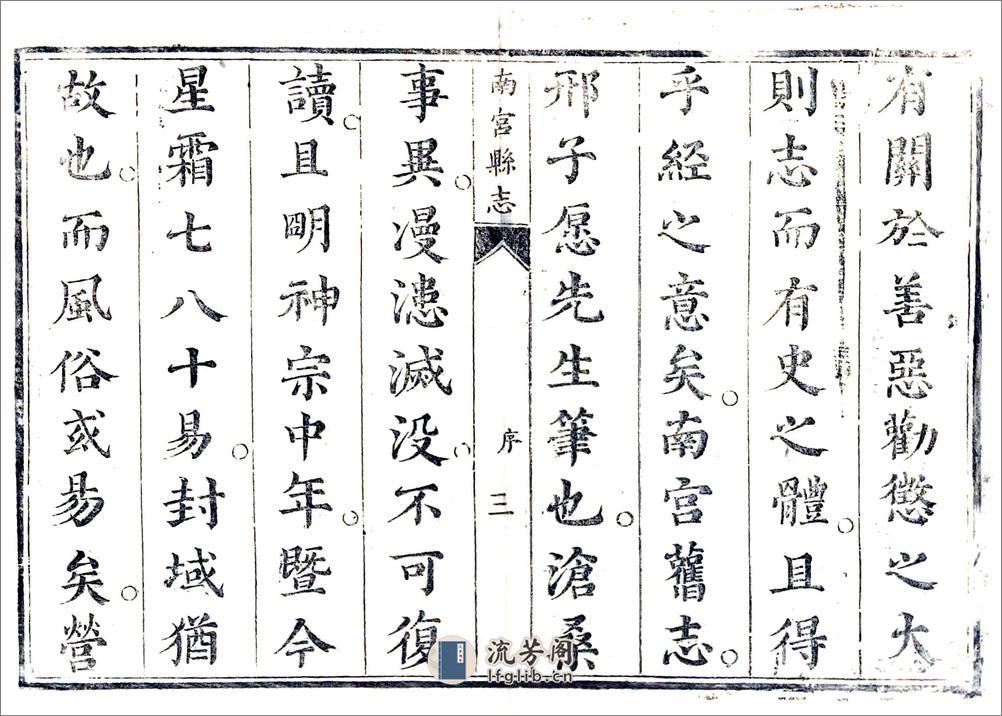 有關於善惡勸懲之大
則志而有史之體。且得
乎經之意矣。南宮舊志。
邢子愿先生筆也。滄桑
南宮縣志
序
三
事異。漫漶滅没。不可復
讀。且明神宗中年。暨今
星霜七八十易。封域猶
故也。而風俗或易矣。營
流芳阁
lfglib.cn